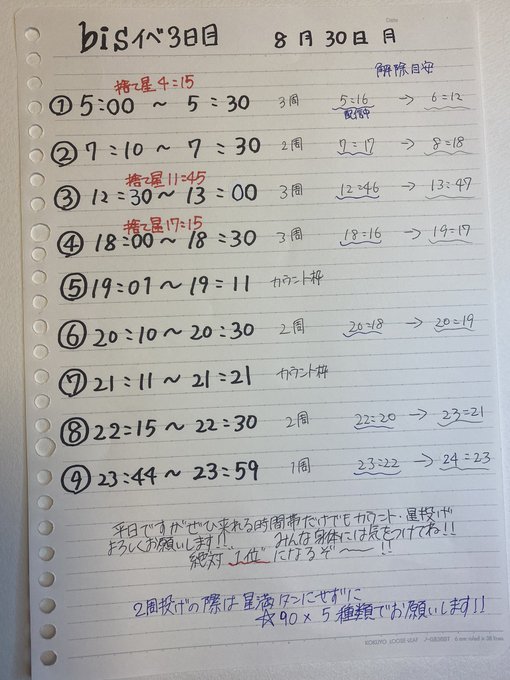 Date
bisイベ3日目 8月30日 月
解除目安
捨て星 4:15
① 5:00 ~ 5:30 3周 5:16 → 6:12
配信中
② 7:10 ~ 7:30 2周 7:17 → 8:18
捨て星 11:45
③ 12:30 ~ 13:00 3周 12:46 → 13:47
捨て星 17:15
④ 18:00 ~ 18:30 3周 18:16 → 19:17
⑤ 19:07 ~ 19:11 カウント枠
⑥ 20:10 ~ 20:30 2周 20:18 → 20:19
⑦ 21:11 ~ 21:21 カウント枠
⑧ 22:15 ~ 22:30 2周 22:20 → 23:21
⑨ 23:44 ~ 23:59 1周 23:22 → 24:23
平日ですがぜひ来れる時間帯だけでもカウント・星投げ
よろしくお願いします!! みんな身体には気をつけてね!!
絶対 1位 になるぞ〜〜!!
2周投げの際は星満タンにせずに
☆90×5種類でお願いします!!
KOKUYO LOOSE-LEAF ノ-G836BT 6 mm ruled × 36 lines